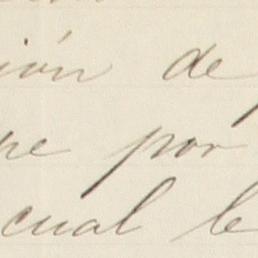 ión de
ne por
cual le